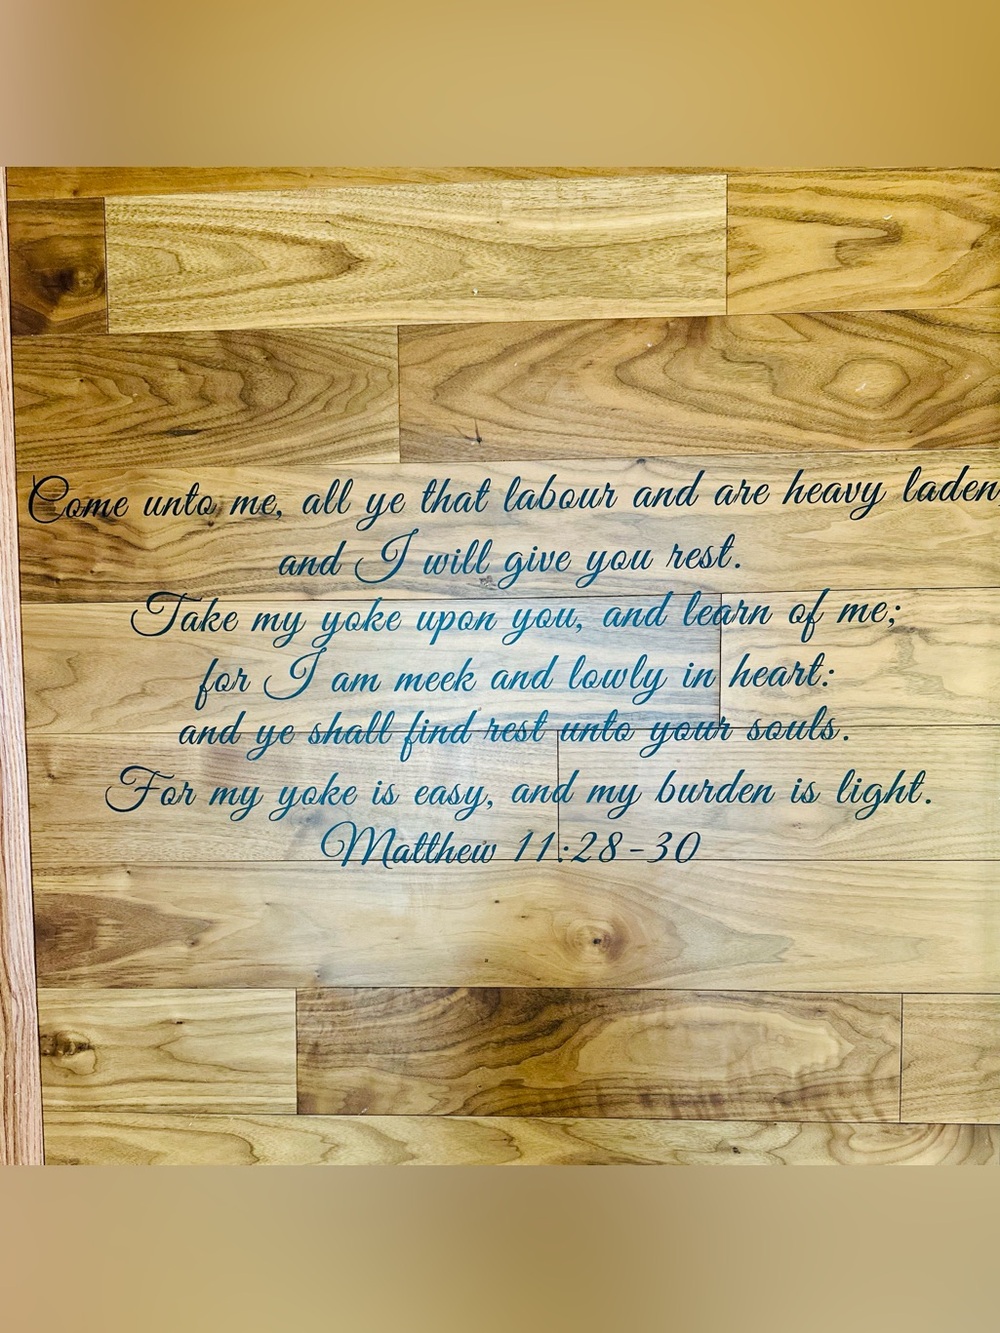 Come unto me, all ye that labour and are heavy laden
and I will give you rest.
Take my yoke upon you, and learn of me;
for I am meek and lowly in heart:
and ye shall find rest unto your souls.
For my yoke is easy, and my burden is light.
Matthew 11:28-30